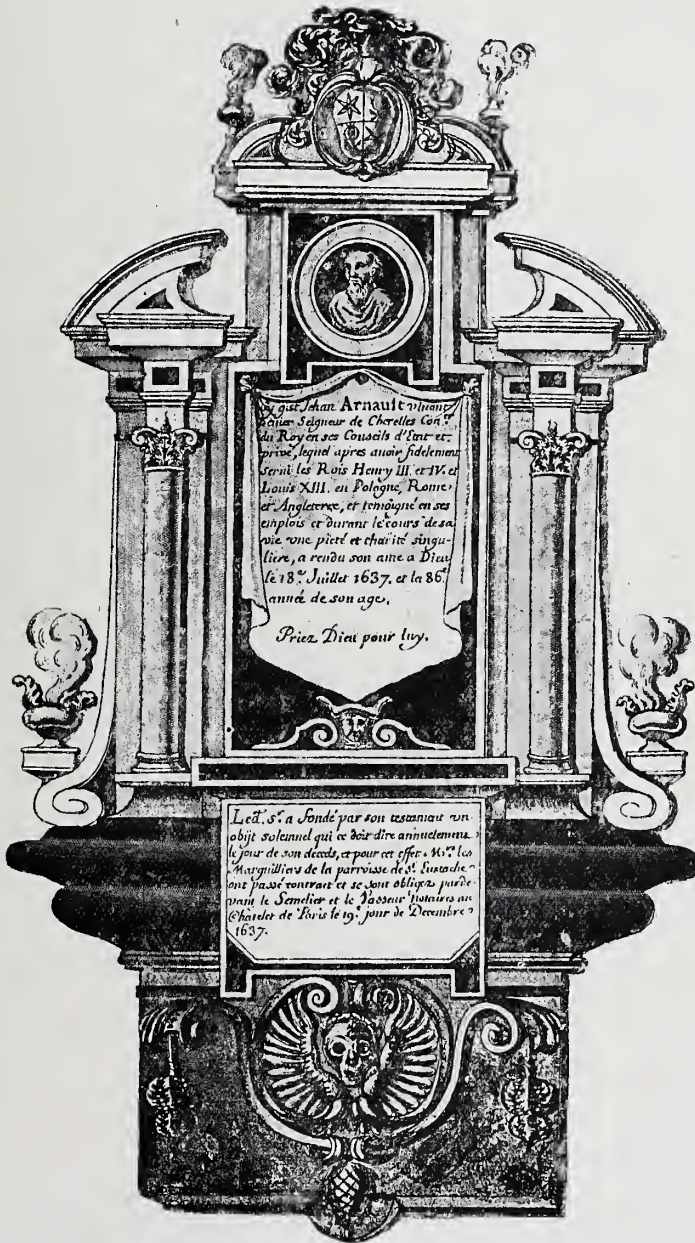 Cy gist Jehan Arnault vivant
Seigneur de Cherelles Con.er
du Roy en ses Conseils d'Etat et
privé, lequel apres auoir fidelement
serui les Rois Henry III. et IV. et
Louis XIII. en Pologne, Rome
et Angleterre, et temoigné en ses
emplois et durant le cours de sa
vie vne pieté et charité singu-
liere, a rendu son ame a Dieu
le 18.e Juillet 1637. et la 86.e
année de son age.
Priez Dieu pour luy.
Led. s.r a fondé par son testament vn
obijt solemnel qui ce doit dire annuelement
le jour de son deceds, et pour cet effet. M.rs les
Marguilliers de la parroisse de S.t Eustache
ont passé contract et se sont obligez parde-
vant le Semelier et le Vasseur notaires au
Chatelet de Paris le 19.e jour de Decembre
1637.